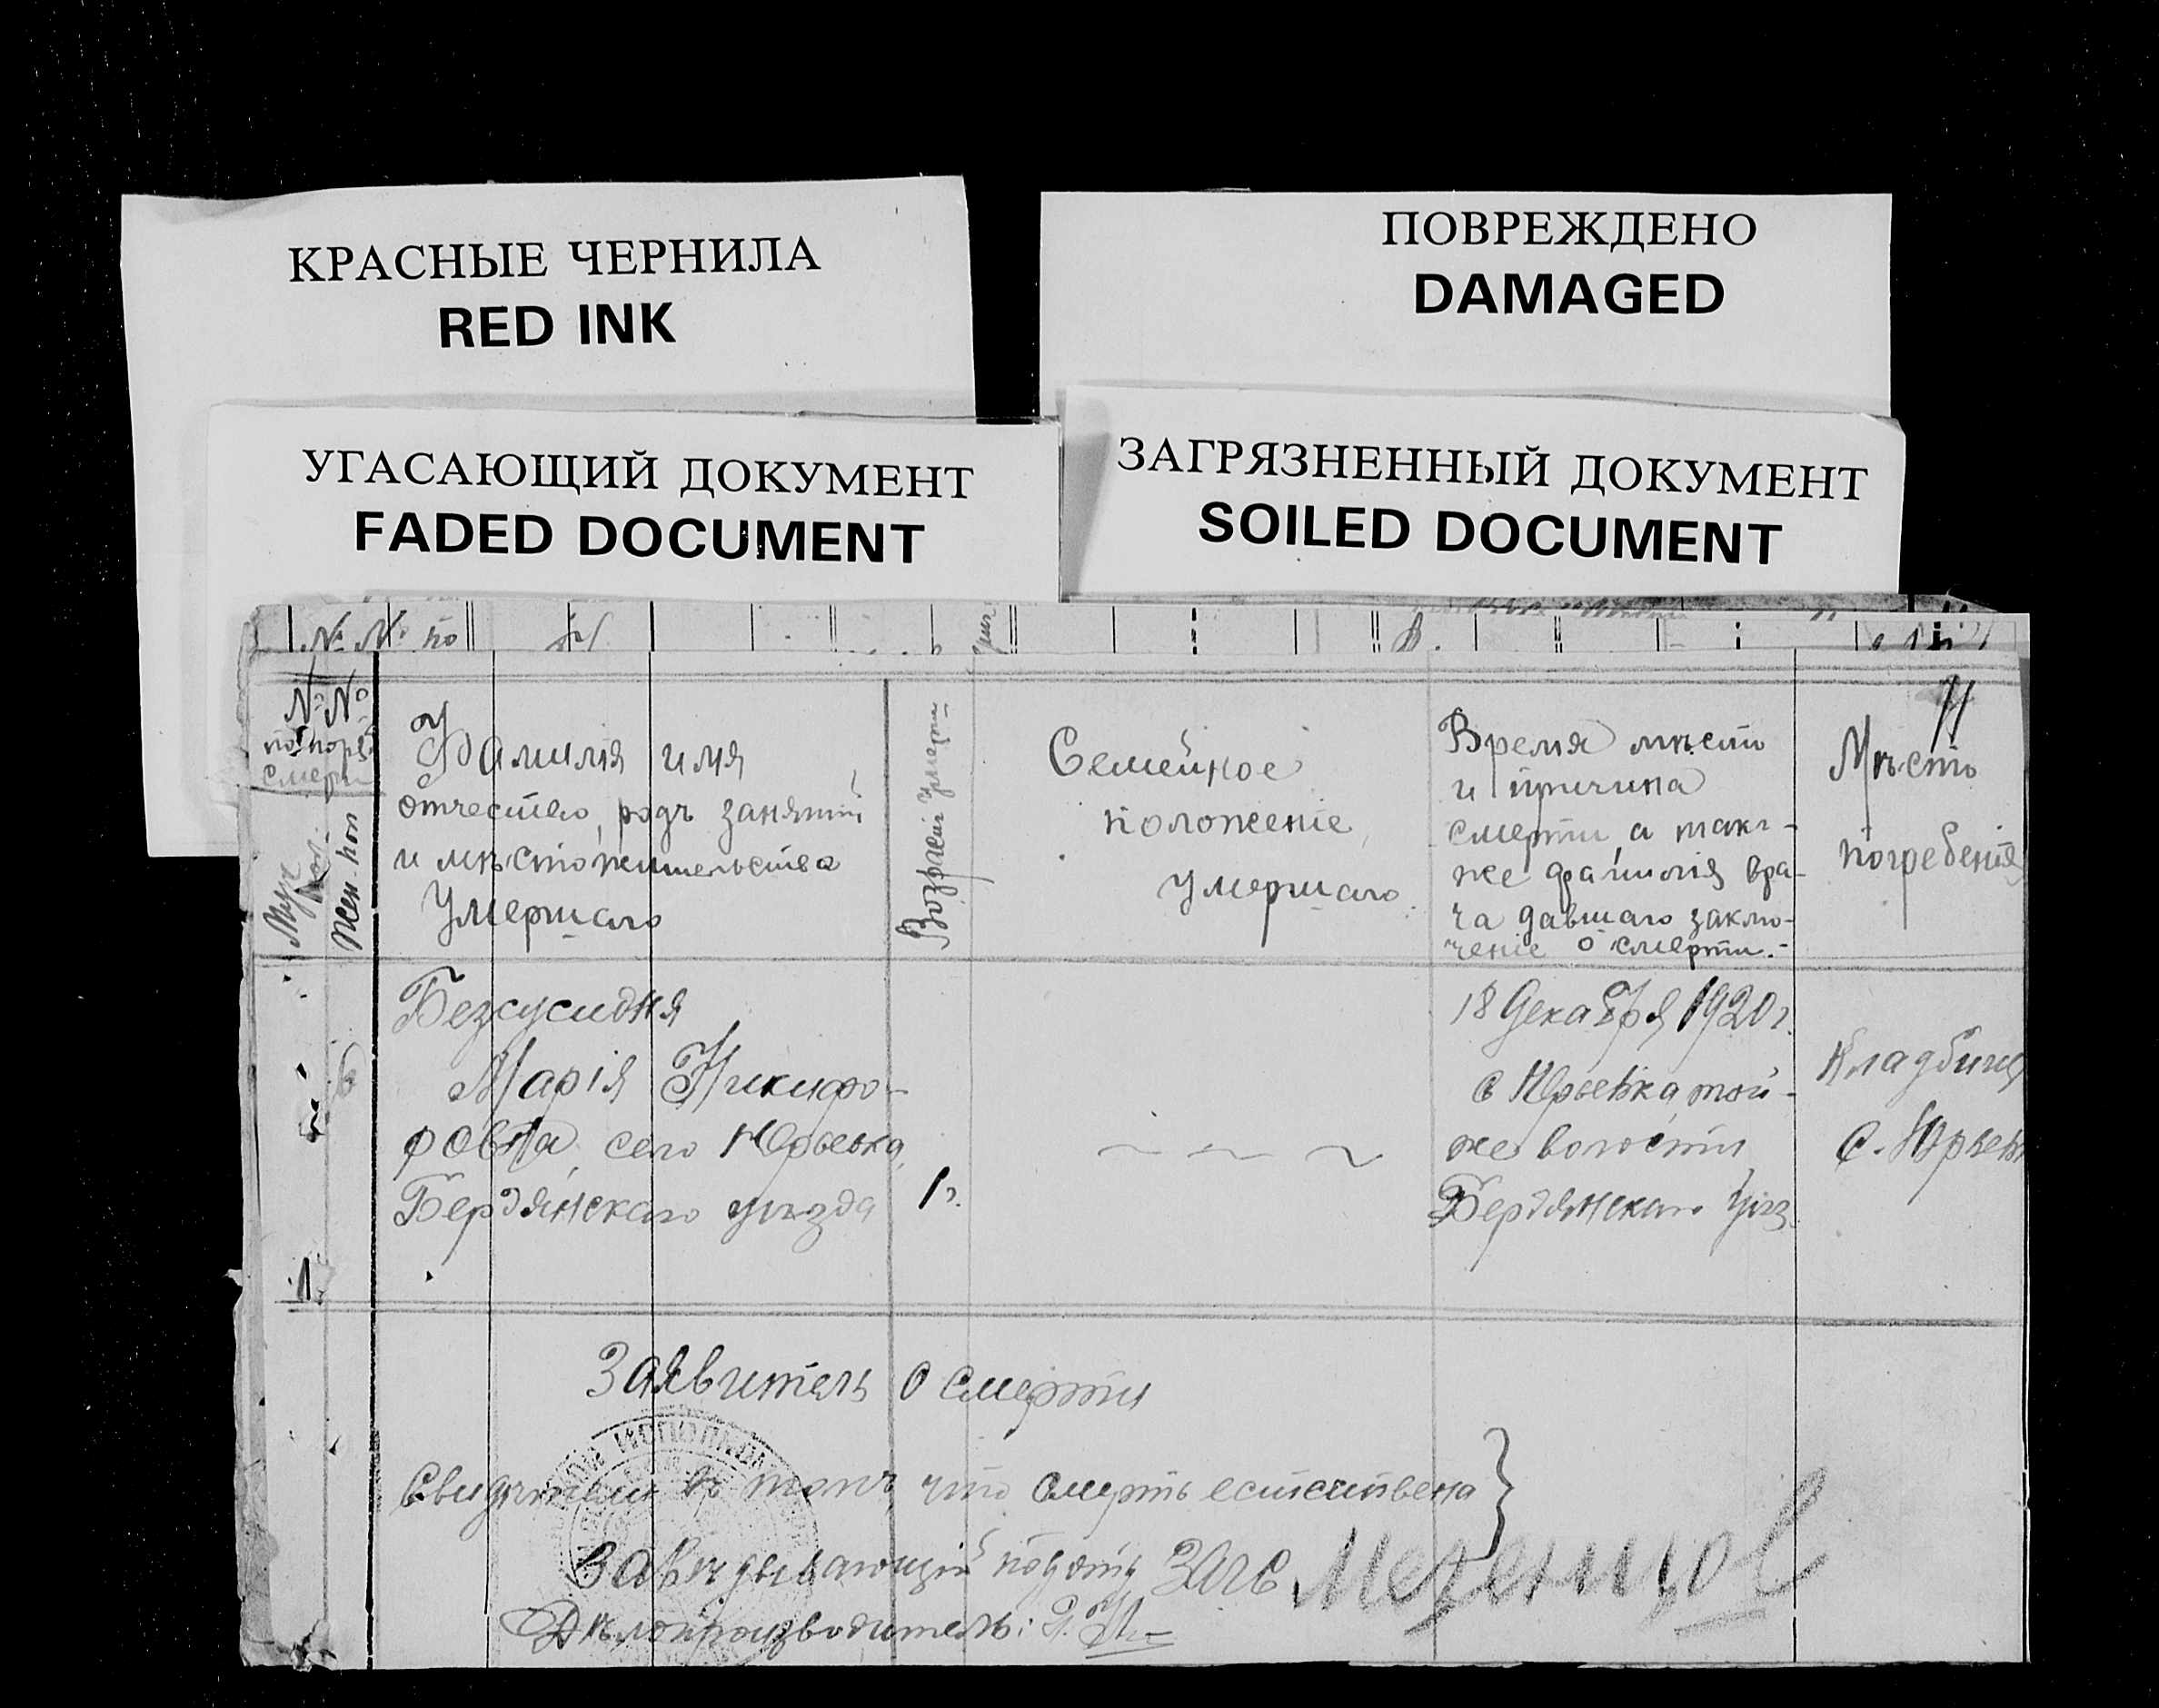 КРАСНЫЕ ЧЕРНИЛА
RED INK
ПОВРЕЖДЕНО
DAMAGED
УГАСАЮЩИЙ ДОКУМЕНТ
FADED DOCUMENT
ЗАГРЯЗНЕННЫЙ ДОКУМЕНТ
SOILED DOCUMENT
№ № по
№ №
по поряд
смерт
Муж. пол.
Жен. пол
Фамилія имя
отчество, родъ занятій
и мѣстожительства
Умершаго
Возрасть Умерш-
Семейное
положеніе
умершаго
Время мѣсто
и причина
смерти, а так-
же фамилія вра-
ча давшаго заклю-
ченіе о смерти.-
Мѣсто
погребенія
6
1.
Безсусидня
Марія Никифо-
ровна, село Юрьевка
Бердянскаго уѣзда
1 г.
18 Декабря 1920 г.
с Юрьевка, той-
же волости
Бердянскаго Уѣз.
Кладбищ
с. Юрьевк
Заявитель о смерти
Свидѣтели въ томъ, что смерть естествена
Завѣдывающій подотд ЗАГС Мезенцов
Дѣлопроизводитель: